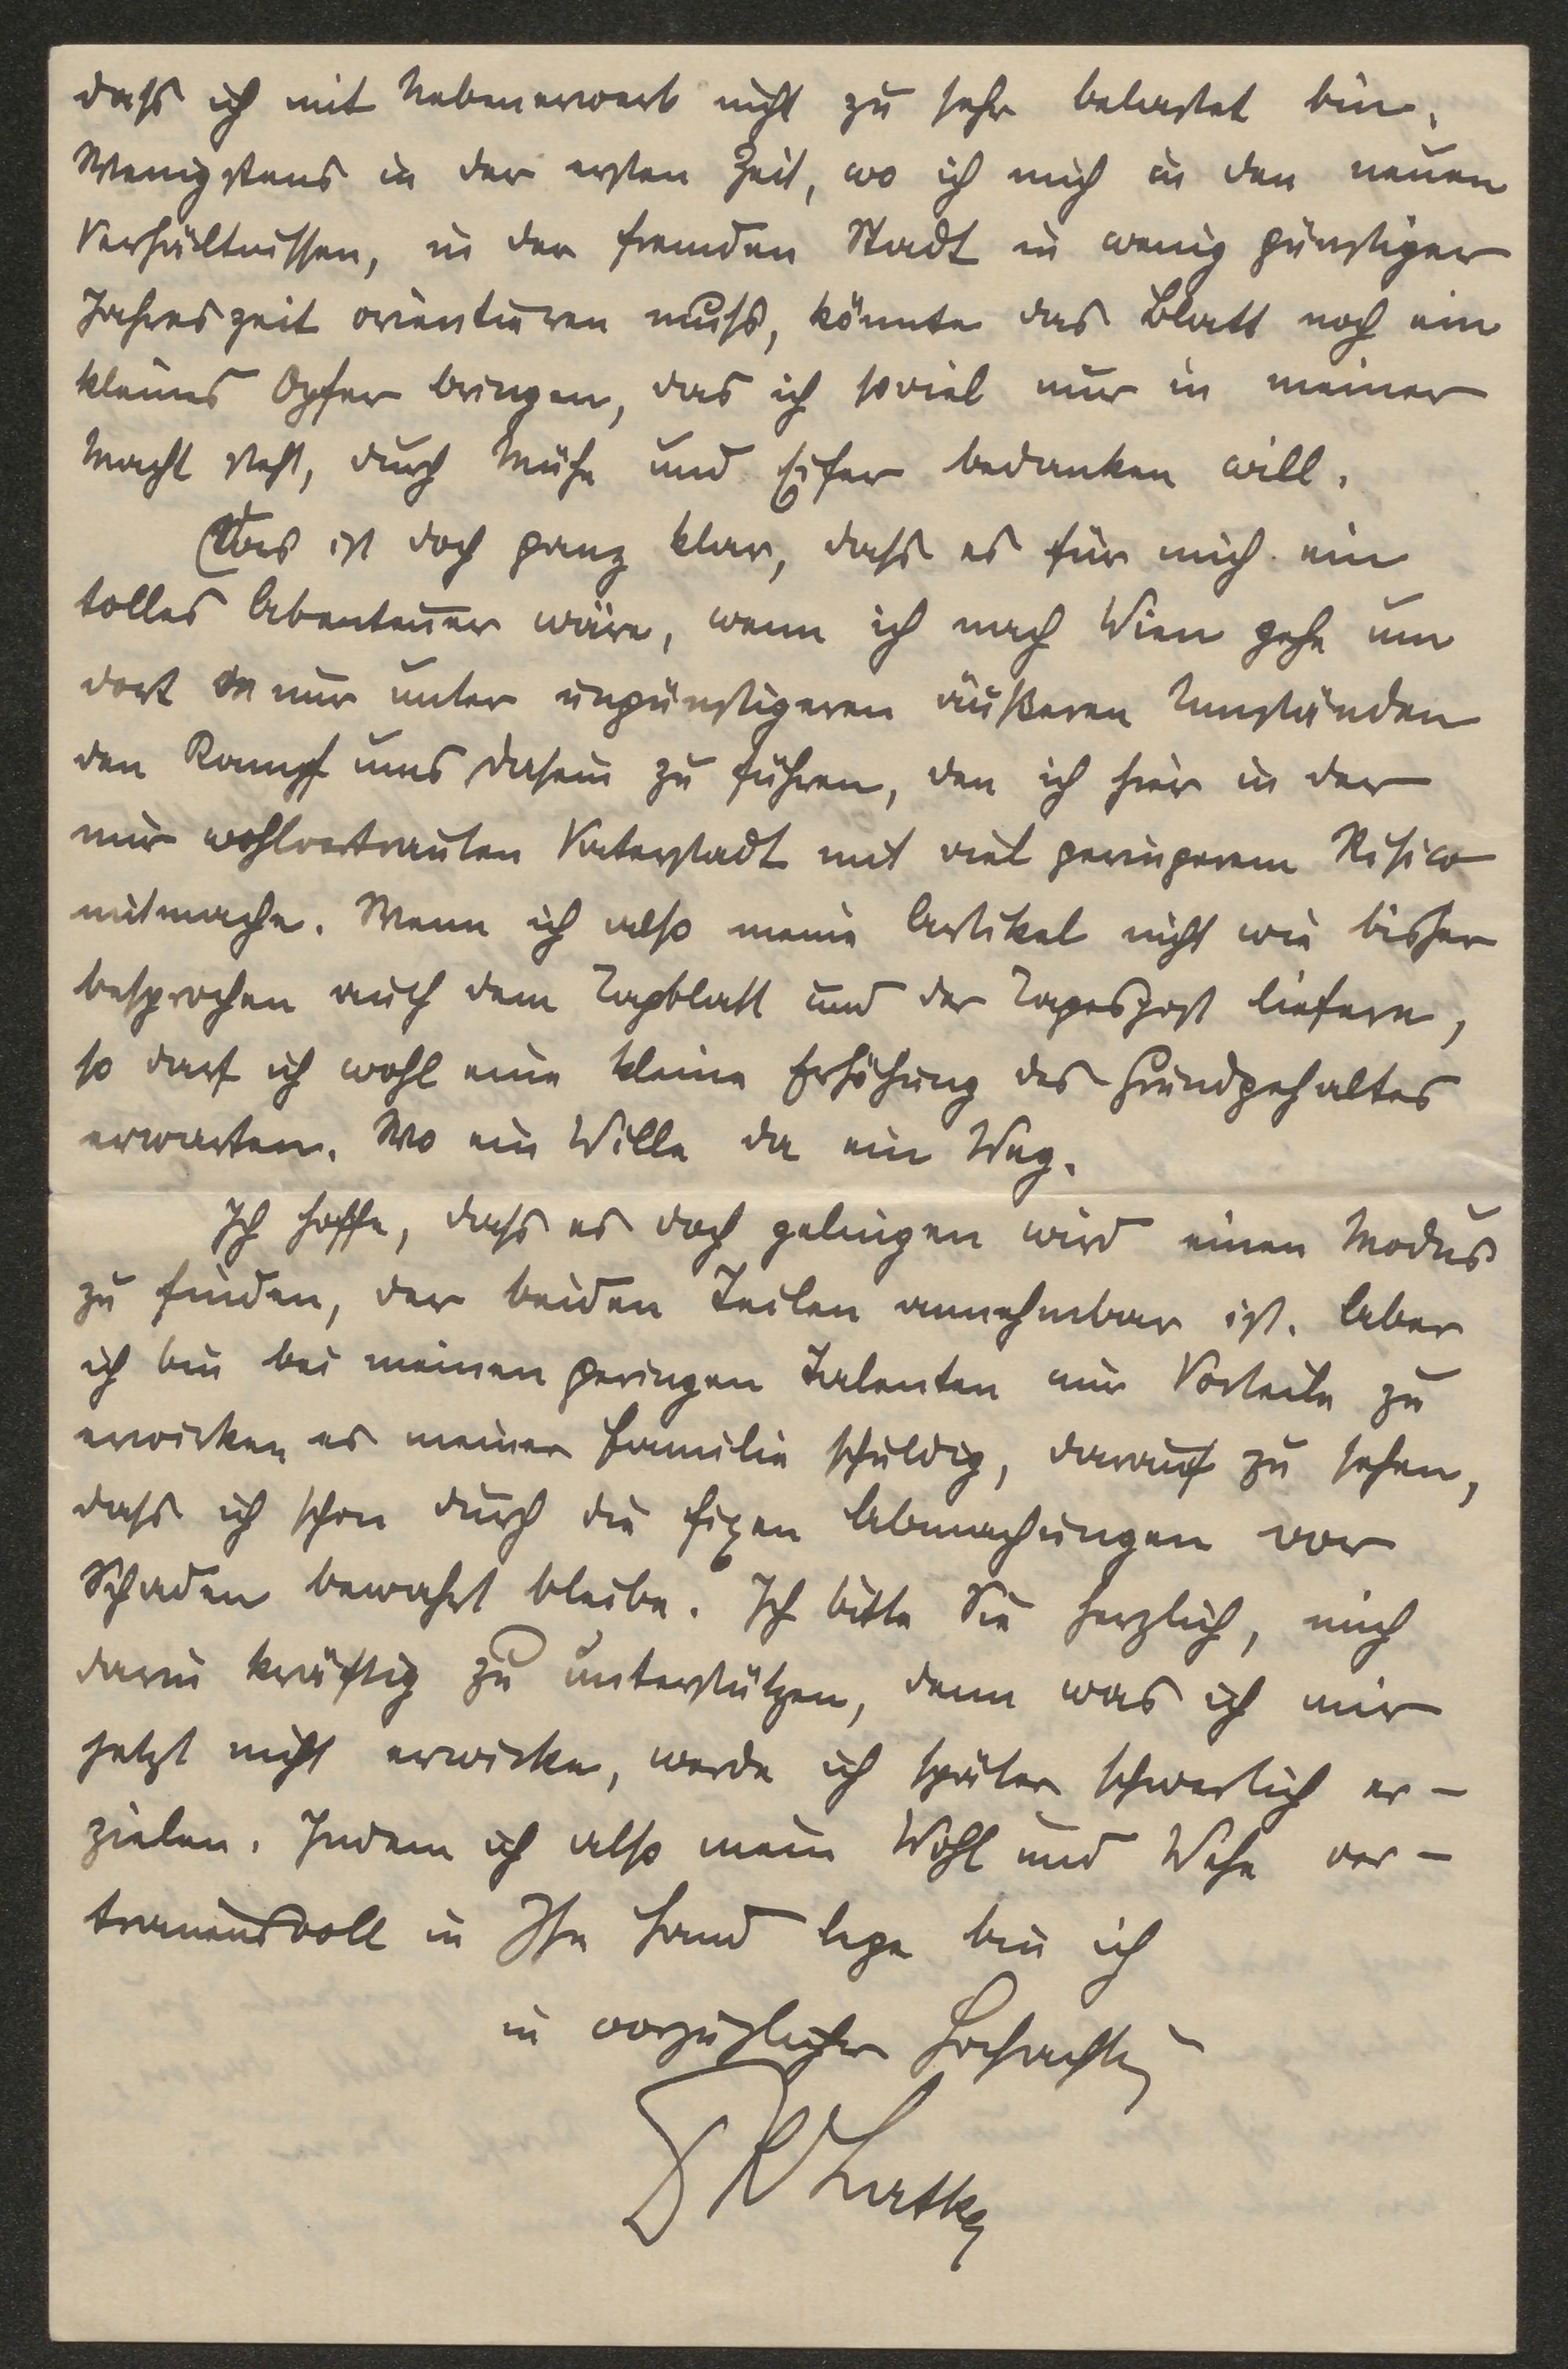 dass ich mit Nebenerwerb nicht zu sehr belastet bin.
Wenigstens in der ersten Zeit, wo ich mich in den neuen
Verhältnissen, in der fremden Stadt in wenig günstiger
Jahreszeit orientieren muss, könnte das Blatt noch ein
kleines Opfer bringen, das ich soviel nur in meiner
Macht steht, durch Mühe und Eifer bedanken will.
Das ist doch ganz klar, dass es für mich ein
tolles Abenteuer wäre, wenn ich nach Wien gehe um
dort nur unter ungünstigeren äußeren Umständen
den Kampf ums Dasein zu führen, den ich hier in der
mir wohlvertrauten Vaterstadt mit viel geringerem Risico
mitmache. Wenn ich also meine Artikel nicht wie bisher
besprochen auch dem Tagblatt und der Tagespost liefere,
so darf ich wohl eine kleine Erhöhung des Grundgehaltes
erwarten. Wo ein Wille da ein Weg.
Ich hoffe, dass es doch gelingen wird einen Modus
zu finden, der beiden Teilen annehmbar ist. Aber
ich bin bei meinen geringen Talenten mir Vorteile zu
erwirken es meiner Familie schuldig, darauf zu sehen,
dass ich schon durch die fixen Abmachungen vor
Schaden bewahrt bleibe. Ich bitte Sie herzlich, mich
darin kräftig zu unterstützen, denn was ich mir
jetzt nicht erwirke, werde ich später schwerlich er-
zielen. Indem ich also mein Wohl und Wehe ver-
trauensvoll in Ihre Hand lege bin ich
in vorzüglicher Hochachtung